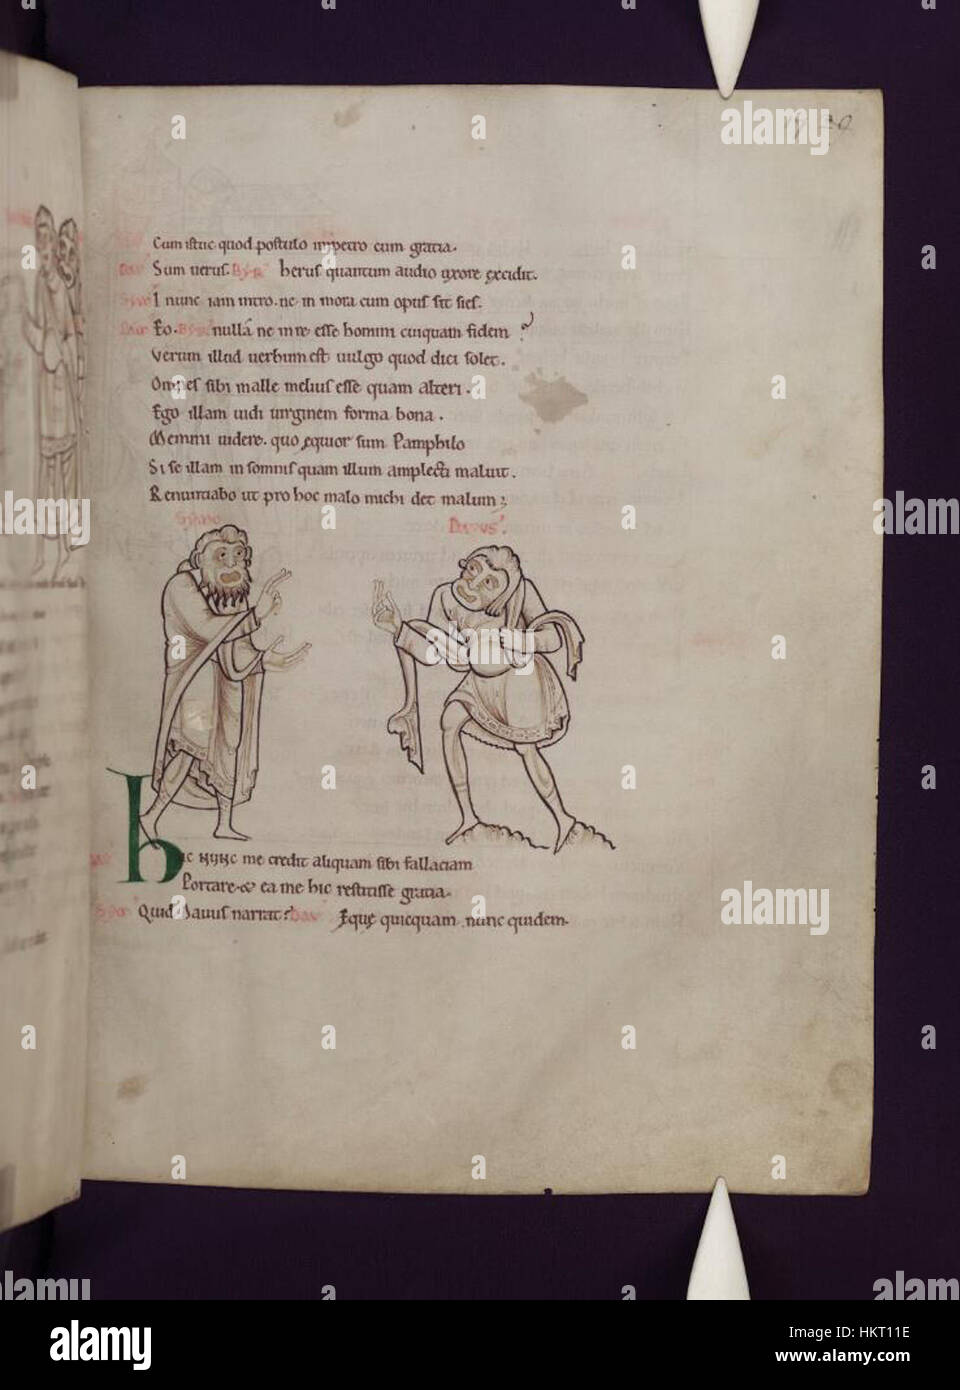 20
Cum istuc quod postulo impetro cum gratia.
Sum uerus. Byr' herus quantum audio uxore excidit.
I nunc iam intro. ne in mora cum opus sit sies.
Eo. Byr' nulla ne in re esse homini cuiquam fidem ?
Verum illud uerbum est uulgo quod dici solet.
Omnes sibi malle melius esse quam alteri.
Ego illam uidi uirginem forma bona.
Memini uidere. quo equior sum Pamphilo
Si se illam in somnis quam illum amplecti maluit.
Renuntiabo ut pro hoc malo michi det malum;
Symo
Davus'.
hic nunc me credit aliquam sibi fallaciam
Portare. & ea me hic restitisse gratia.
Quid Dauus narrat? Dav' Eque quicquam nunc quidem.
alamy
Image ID: HKT11E
www.alamy.com